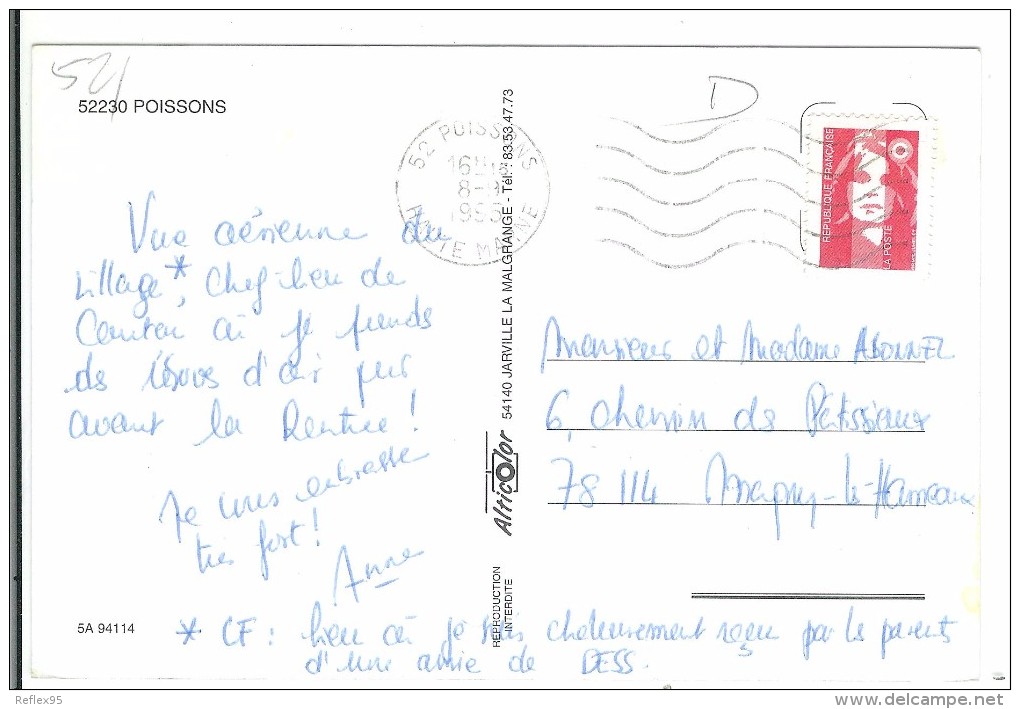 52
D
52230 POISSONS
52 POISSONS
16H
8-
1995
HTE MARNE
RÉPUBLIQUE FRANÇAISE
LA POSTE
Vue aérienne du
village*, Chef-lieu de
Canton où je prends
des bols d'air pur
avant la Rentrée !
Je vous embrasse
très fort !
Anne
* CF : lieu où je suis chaleureusement reçue par les parents
d'une amie de DESS.
5A 94114
54140 JARVILLE LA MALGRANGE - Tél. : 83.53.47.73
Alticolor
REPRODUCTION
INTERDITE
Monsieur et Madame ABONNEL
6, chemin des Pâtissiaux
78 114 Magny-les-Hameaux
Reflex95
www.delcampe.net